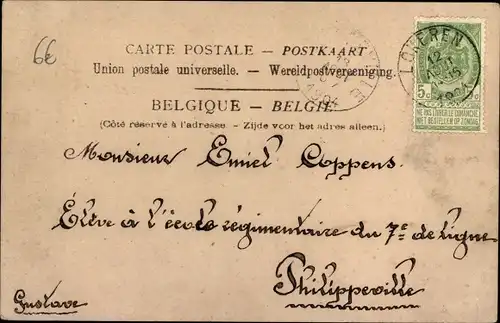 6€
CARTE POSTALE — POSTKAART
Union postale universelle. — Wereldpostvereeniging.
BELGIQUE — BELGIE
(Côté réservé à l'adresse. - Zijde voor het adres alleen.)
LOKEREN
12
5c
NE PAS LIVRER LE DIMANCHE
NIET BESTELLEN OP ZONDAG
Monsieur Emiel Coppens
Élève à l'école régimentaire du 7e de ligne
Philippeville
Gustave